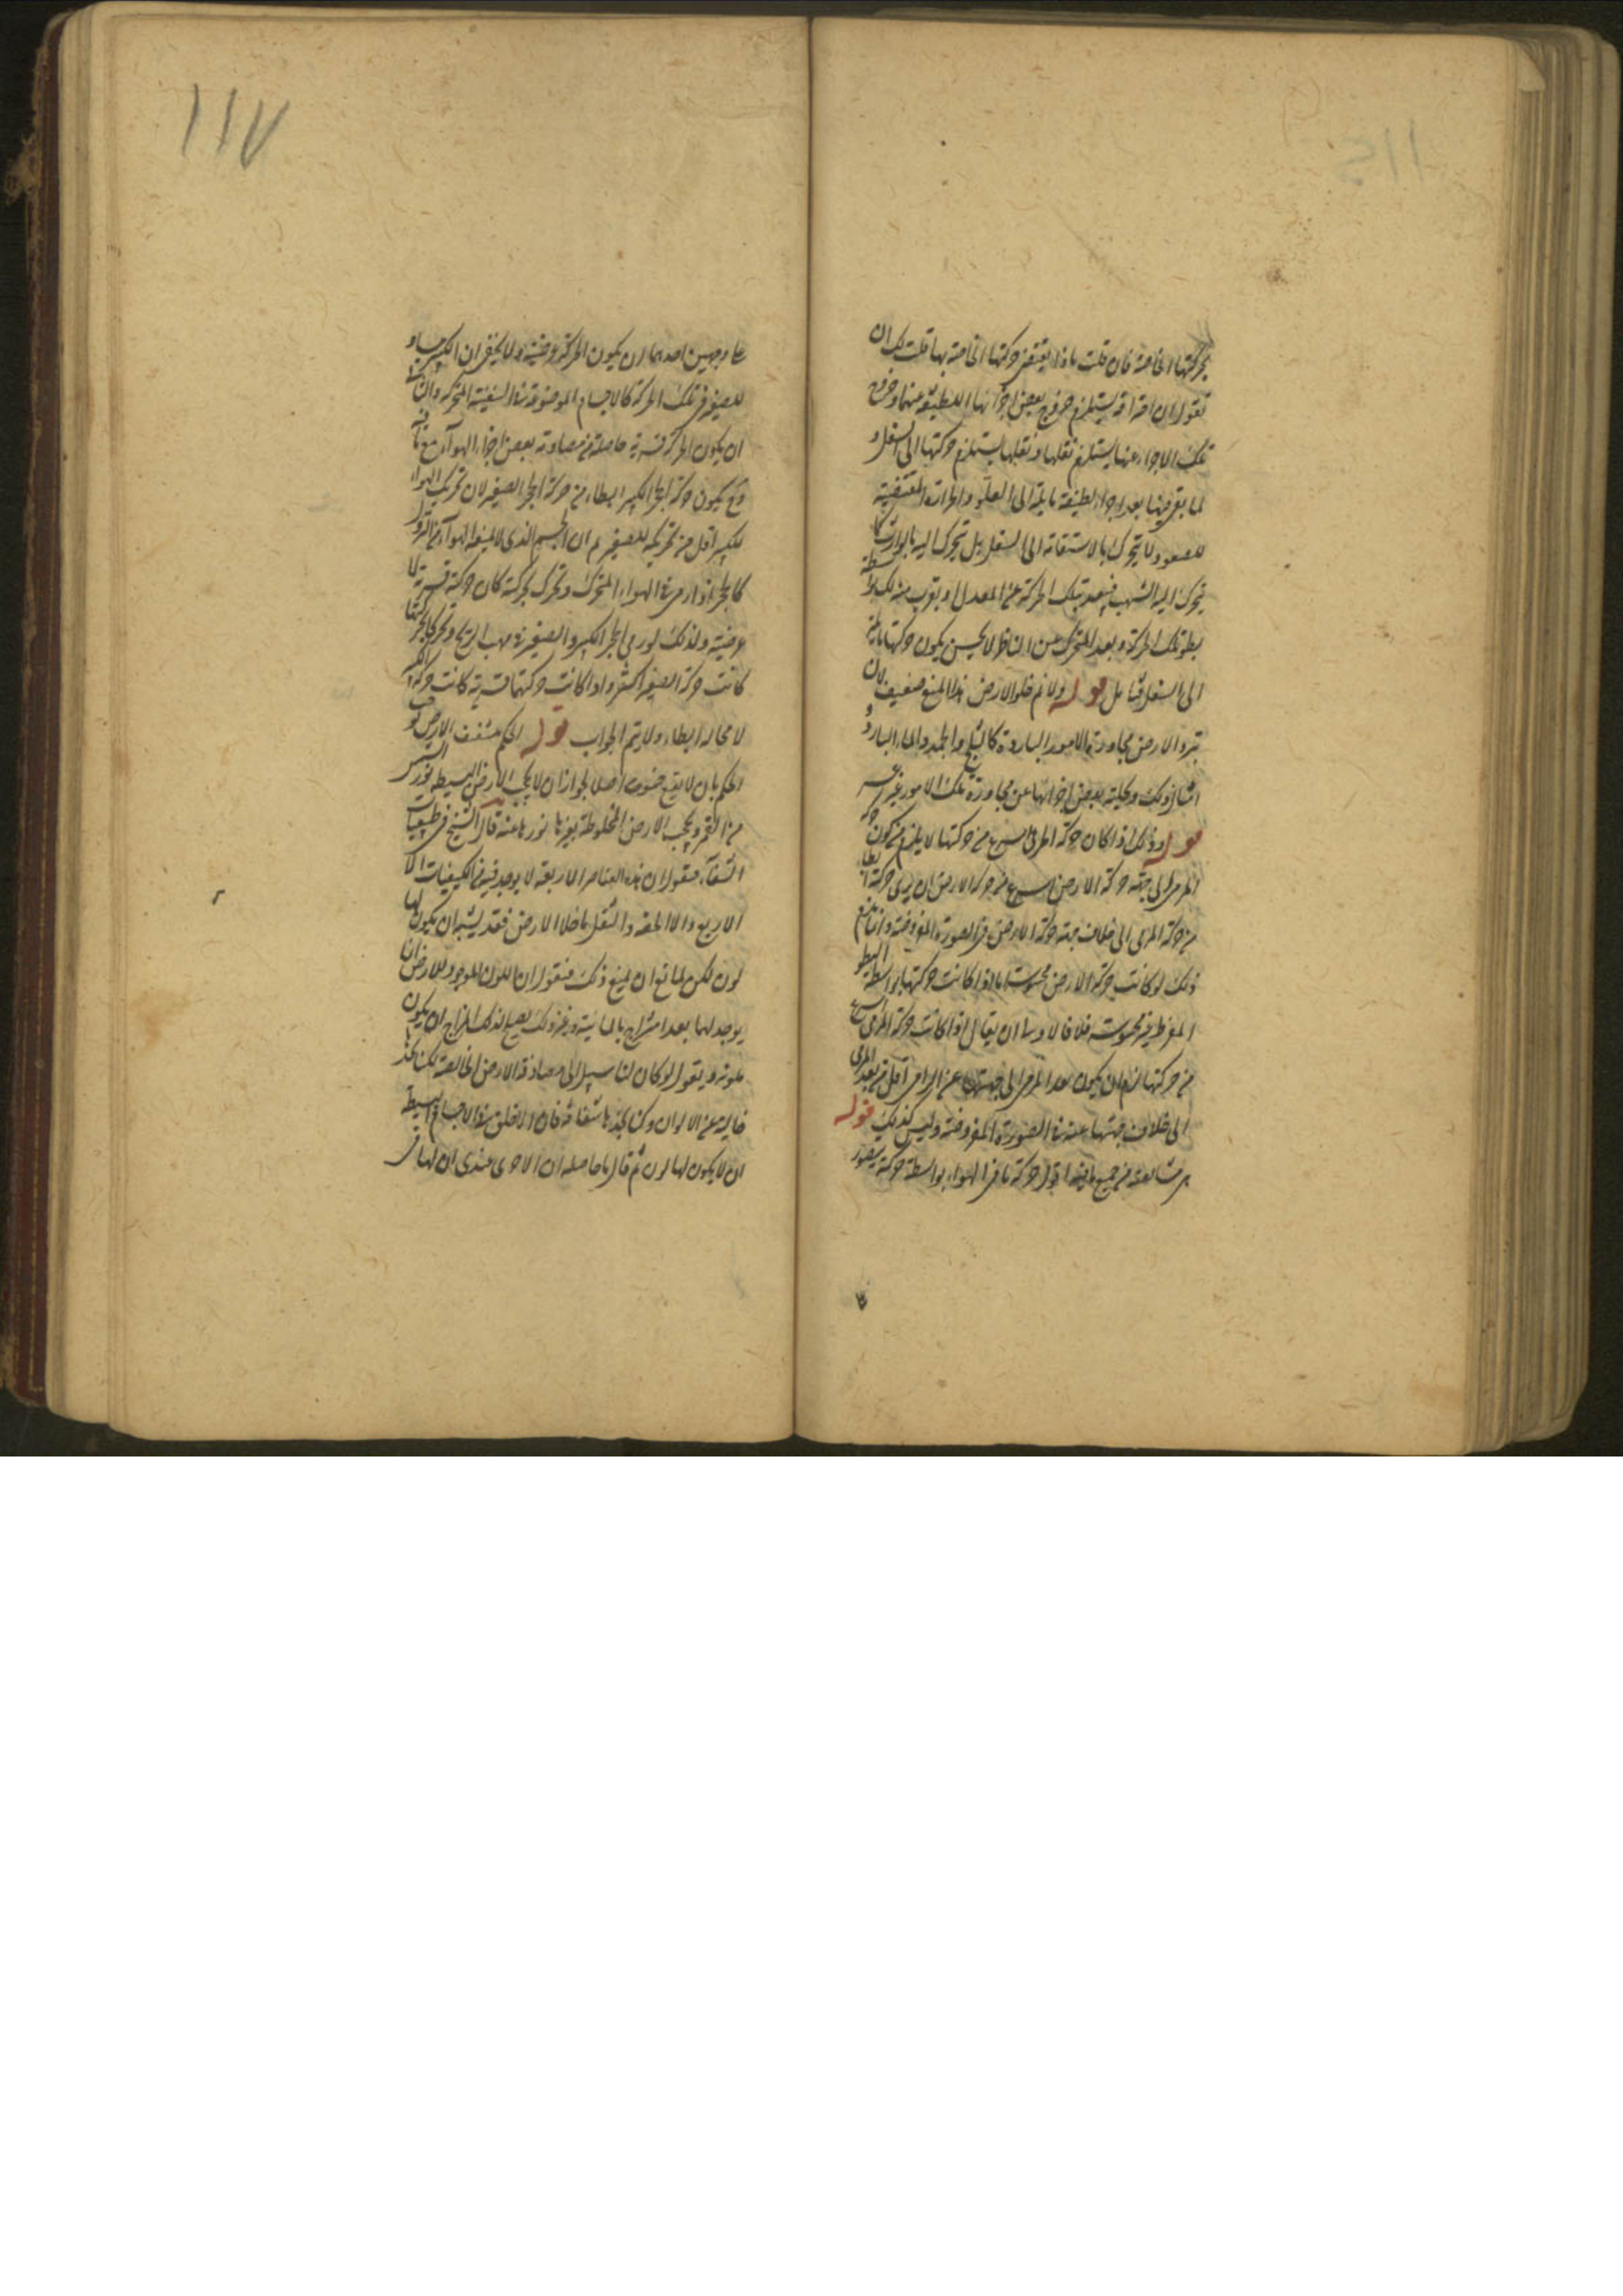 بحركتها الخاصة فان قلت ماذا يقتضى حركتها الخاصة بها قلت لك ان
تقول ان احتراقه يستلزم خروج بعض اجزائها اللطيفة عنها وخروج
تلك الاجزاء عنها يستلزم ثقلها وثقلها يستلزم حركتها الى السفل و
لما بقى فيها بعد اجزاء لطيفة مايلة الى العلو والحرارة المقتضية
للصعود لا يتحرك بالاستقامة الى السفل بل تحرك اليه بالوارب كما
يتحرك اليه الشهب فيبعد بتلك الحركة عن المعدل او يقرب منه لكن بواسطة
بطؤ تلك الحركة وبعد المتحرك عن الناظر لا يحس بكون حركتها مايلة
الى السفل فتأمل قوله ولانم خلو الارض هذا المنع ضعيف لان
تبرد الارض مجاورة الامور الباردة كالثلج والجمد والماء البارد و
امثال ذلك وتخلية بعض اجزائها عن مجاورة تلك الامور غير عسر
قوله وذلك اذا كان حركة المرمى اسرع من حركتها لا يلزم من كون حركة
المرمى الى جهة حركة الارض اسرع من حركة الارض ان يرى حركته ابطأ
من حركة المرمى الى خلاف جهة حركة الارض فى الصورة المفروضة وانما يلزم
ذلك لو كانت حركة الارض محسوسة اما اذا كانت حركتها بواسطة البطؤ
المفرط غير محسوسة فلا فالاولى ان يقال اذا كانت حركة المرمى اسرع
من حركتها لزم ان يكون بعد المرمى الى جهتها عن الرامى اقل من بعد المرمى
الى خلاف جهتها عنه فى الصورة المفروضة وليس كذلك قوله
مشايعته فى جميع ما فيه اقول حركة ما فى الهواء بواسطة حركته يتصور
على وجهين احدهما ان يكون الحركة عرضية ولا يخفى ان الكبير مساو
للصغير فى تلك الحركة كالاجسام الموضوعة فى السفينة المتحركة والثانى
ان يكون الحركة قسرية حاصلة من مصادمة بعض اجزاء الهواء مع ما فيه
وح يكون حركة الحجر الكبير ابطاء من حركة الحجر الصغير لان تحريك الهواء
للكبير اقل من تحريكه للصغير ثم ان الجسم الذى لا يمنعه الهواء من النزول
كالحجر اذا رمى فى الهواء المتحرك وتحرك بحركته كان حركته قسرية لا
عرضية ولذلك لو رمى الحجر الكبير والصغير فى مهب الريح وتحركا بحركتها
كانت حركة الصغير اكثر واذا كانت حركتهما قسرية كانت حركة الكبير
لا محالة ابطاء ولا يتم الجواب قوله الحكم بشفف الارض لو
الحكم بان لا يقع خسوف اصلا لجواز ان لا يحجب الارض البسيطة نور الشمس
من القمر ويحجب الارض المخلوطة بغيرها نورها عنه قال الشيخ فى طبيعيات
الشفاء فنقول ان هذه العناصر الاربعة لا يوجد فيها من الكيفيات الا
الاربع والا الخفة والثقل ما خلا الارض فقد يشبه ان يكون لها
لون لكن لمانع ان يمنع ذلك فنقول ان اللون الموجود للارض انما
يوجد لها بعد امتزاج بالمائية وغير ذلك يصلح لذلك المزاج ان يكون
ملونة ويقول لو كان لنا سبيل الى مصادفة الارض الخالصة لكنا نجدها
خالية عن الالوان وكنا نجدها شفافة فان الاخلق فى الاجسام البسيطة
ان لا يكون لها لون ثم قال ما حاصله ان الاحرى عندى ان لها فى